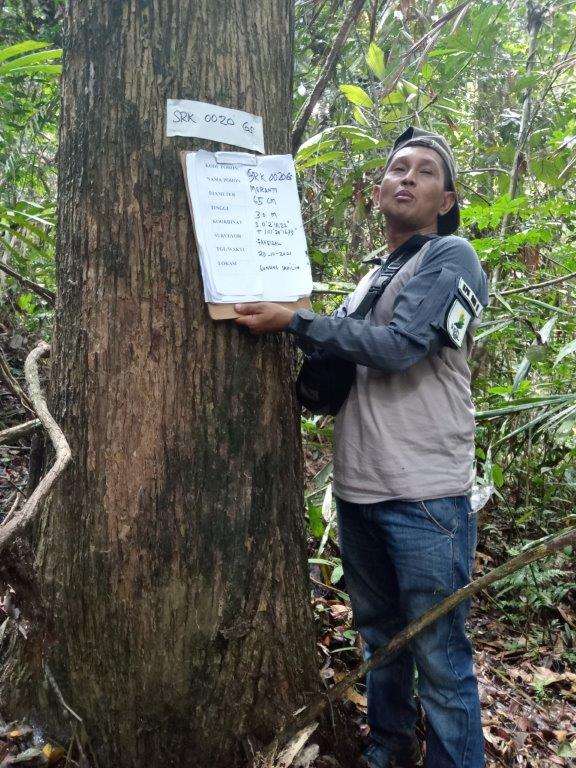 SRK 0020 GS
KODE POHON SRK 0020 GS
NAMA POHON MERANTI
DIAMETER 65 CM
TINGGI 30 M
KOORDINAT
SURVEYOR
TGL/WAKTU 20-10-2021
LOKASI GUNUNG